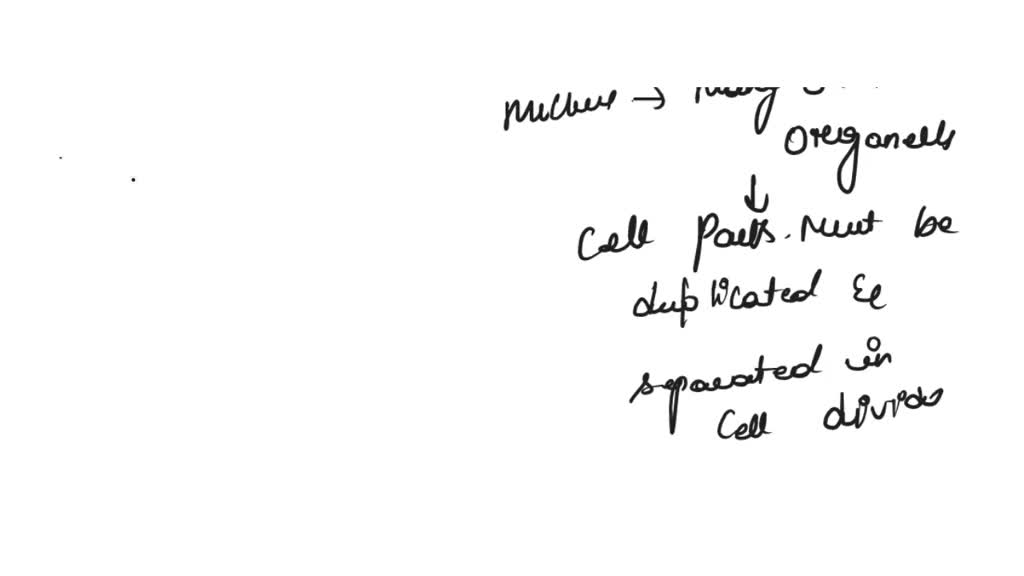 nucleus → many
Oreganells
↓
Cell Parts. Must be
duplicated &
separated in
Cell divids